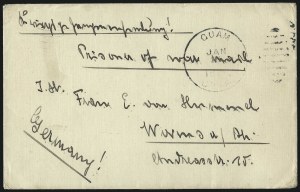 Kriegsgefangenensendung!
GUAM
JAN
Prisoner of war mail
Frau E. von
Worms a/Rh.
Andreasstr. 15.
Germany!